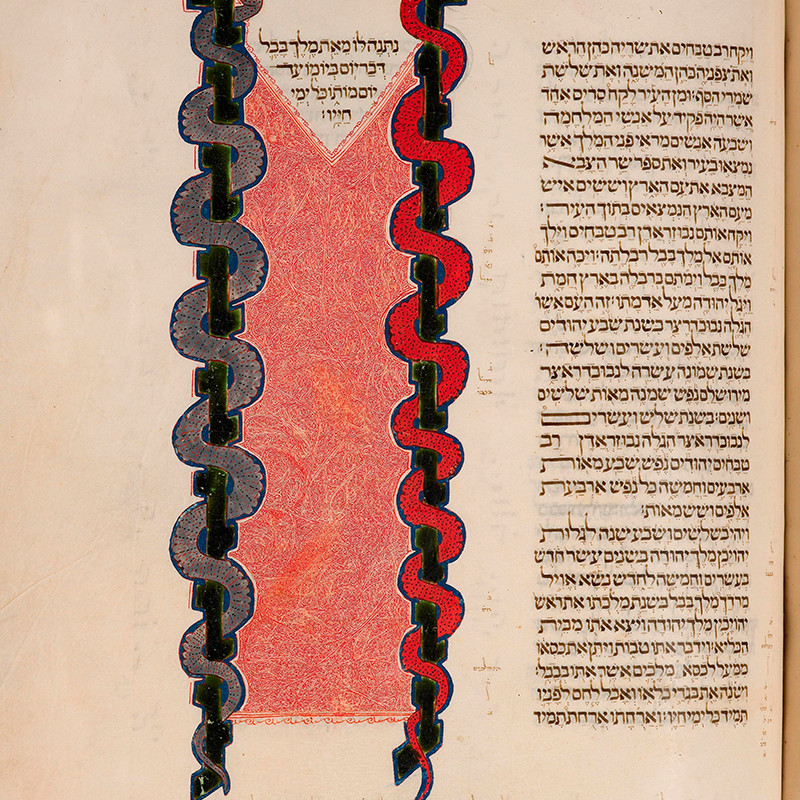 ויקח רב טבחים את שריה כהן הראש
ואת צפניה כהן המשנה ואת שלשת
שמרי הסף׃ ומן העיר לקח סריס אחד
אשר היה פקיד על אנשי המלחמה
ושבעה אנשים מראי פני המלך אשר
נמצאו בעיר ואת ספר שר הצבא
המצבא את עם הארץ וששים איש
מעם הארץ הנמצאים בתוך העיר׃
ויקח אותם נבוזראדן רב טבחים וילך
אותם אל מלך בבל רבלתה׃ ויכה אותם
מלך בבל וימתם ברבלה בארץ חמת
ויגל יהודה מעל אדמתו׃ זה העם אשר
הגלה נבוכדראצר בשנת שבע יהודים
שלשת אלפים ועשרים ושלשה׃
בשנת שמונה עשרה לנבוכדראצר
מירושלם נפש שמנה מאות שלשים
ושנים׃ בשנת שלש ועשרים
לנבוכדראצר הגלה נבוזראדן רב
טבחים יהודים נפש שבע מאות
ארבעים וחמשה כל נפש ארבעת
אלפים ושש מאות׃
ויהי בשלשים ושבע שנה לגלות
יהויכן מלך יהודה בשנים עשר חדש
בעשרים וחמשה לחדש נשא אויל
מרדך מלך בבל בשנת מלכתו את ראש
יהויכין מלך יהודה ויצא אתו מבית
הכליא׃ וידבר אתו טבות ויתן את כסאו
ממעל לכסא מלכים אשר אתו בבבל׃
ושנה את בגדי כלאו ואכל לחם לפניו
תמיד כל ימי חיו׃ וארחתו ארחת תמיד
נתנה לו מאת מלך בבל
דבר יום ביומו עד
יום מותו כל ימי
חייו׃